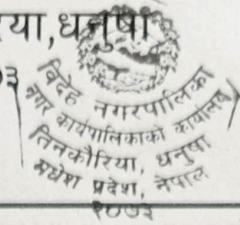 या,धनुषा
३
विदेह नगरपालिका
नगर कार्यपालिकाको कार्यालय
तिनकौरिया, धनुषा
मधेश प्रदेश, नेपाल
२०७३